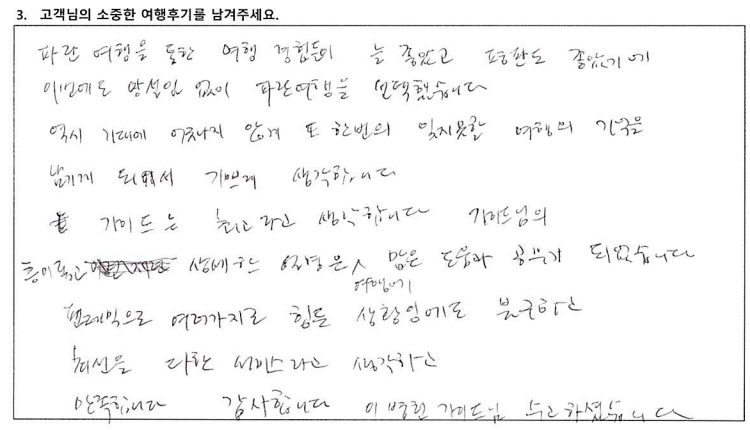 3. 고객님의 소중한 여행후기를 남겨주세요.
파란 여행을 통한 여행 경험들이 늘 좋았고 평판도 좋았기에
이번에도 망설임 없이 파란여행을 선택했습니다
역시 기대에 어긋나지 않게 또 한번의 잊지못할 여행의 기억을
남기게 되어서 기쁘게 생각합니다
가이드는 최고라고 생각합니다 가이드님의
흥미롭고 상세한 설명은 여행에 많은 도움과 공부가 되었습니다
여러가지로 힘든 상황임에도 불구하고
최선을 다한 서비스라고 생각하고
만족합니다 감사합니다 이병헌 가이드님 수고하셨습니다